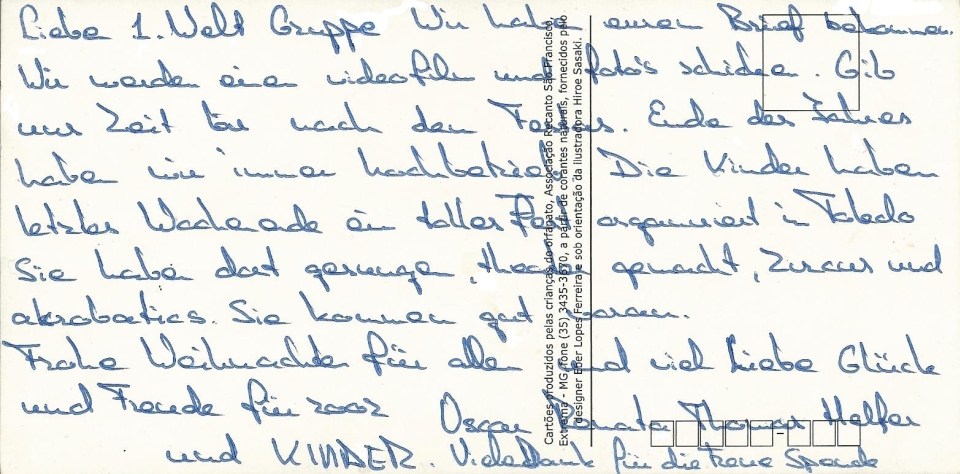 Liebe 1. Welt Gruppe Wir haben einen Brief bekommen.
Wir werden eine videofilm und foto's schicken. Gib
uns Zeit bis nach den Ferien. Ende des Jahres
haben wir immer hochbetrieb. Die Kinder haben
letztes Wochenende ein tolles Fest organisiert in Toledo
Sie haben dort gesungen, theater gemacht, Zircus und
akrobatics. Sie kommen gut voran.
Frohe Weihnachten für alle und viel Liebe Glück
und Freude für 2002
Oscar Renata Thomas Helfer
und KINDER. Vielen Dank für die treue Spende
Cartões produzidos pelas crianças do orfanato, Associação Recanto São Francisco,
Extrema - MG, fone (35) 3435-3670, a partir de corantes naturais, fornecidos pelo
designer Eber Lopes Ferreira e sob orientação da ilustradora Hiroe Sasaki.